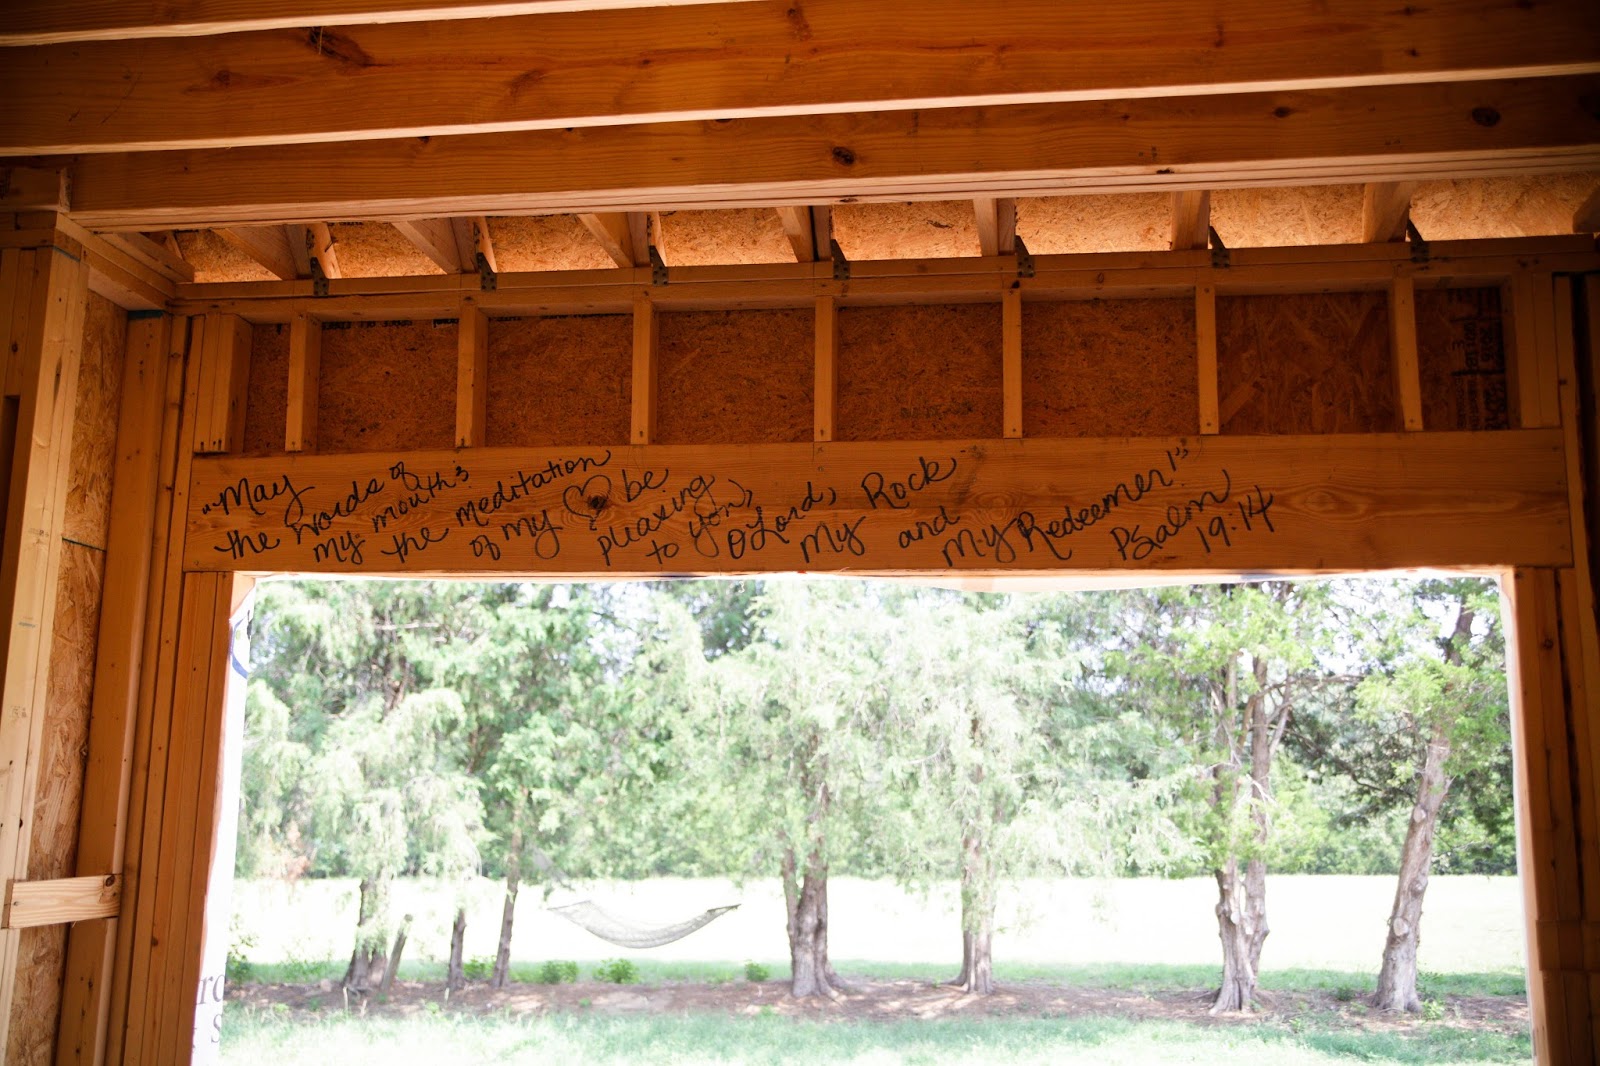 "May
the words of
my mouth &
the meditation
of my ♡ be
pleasing
to you,
O Lord,
my Rock
and
my Redeemer!"
Psalm
19:14